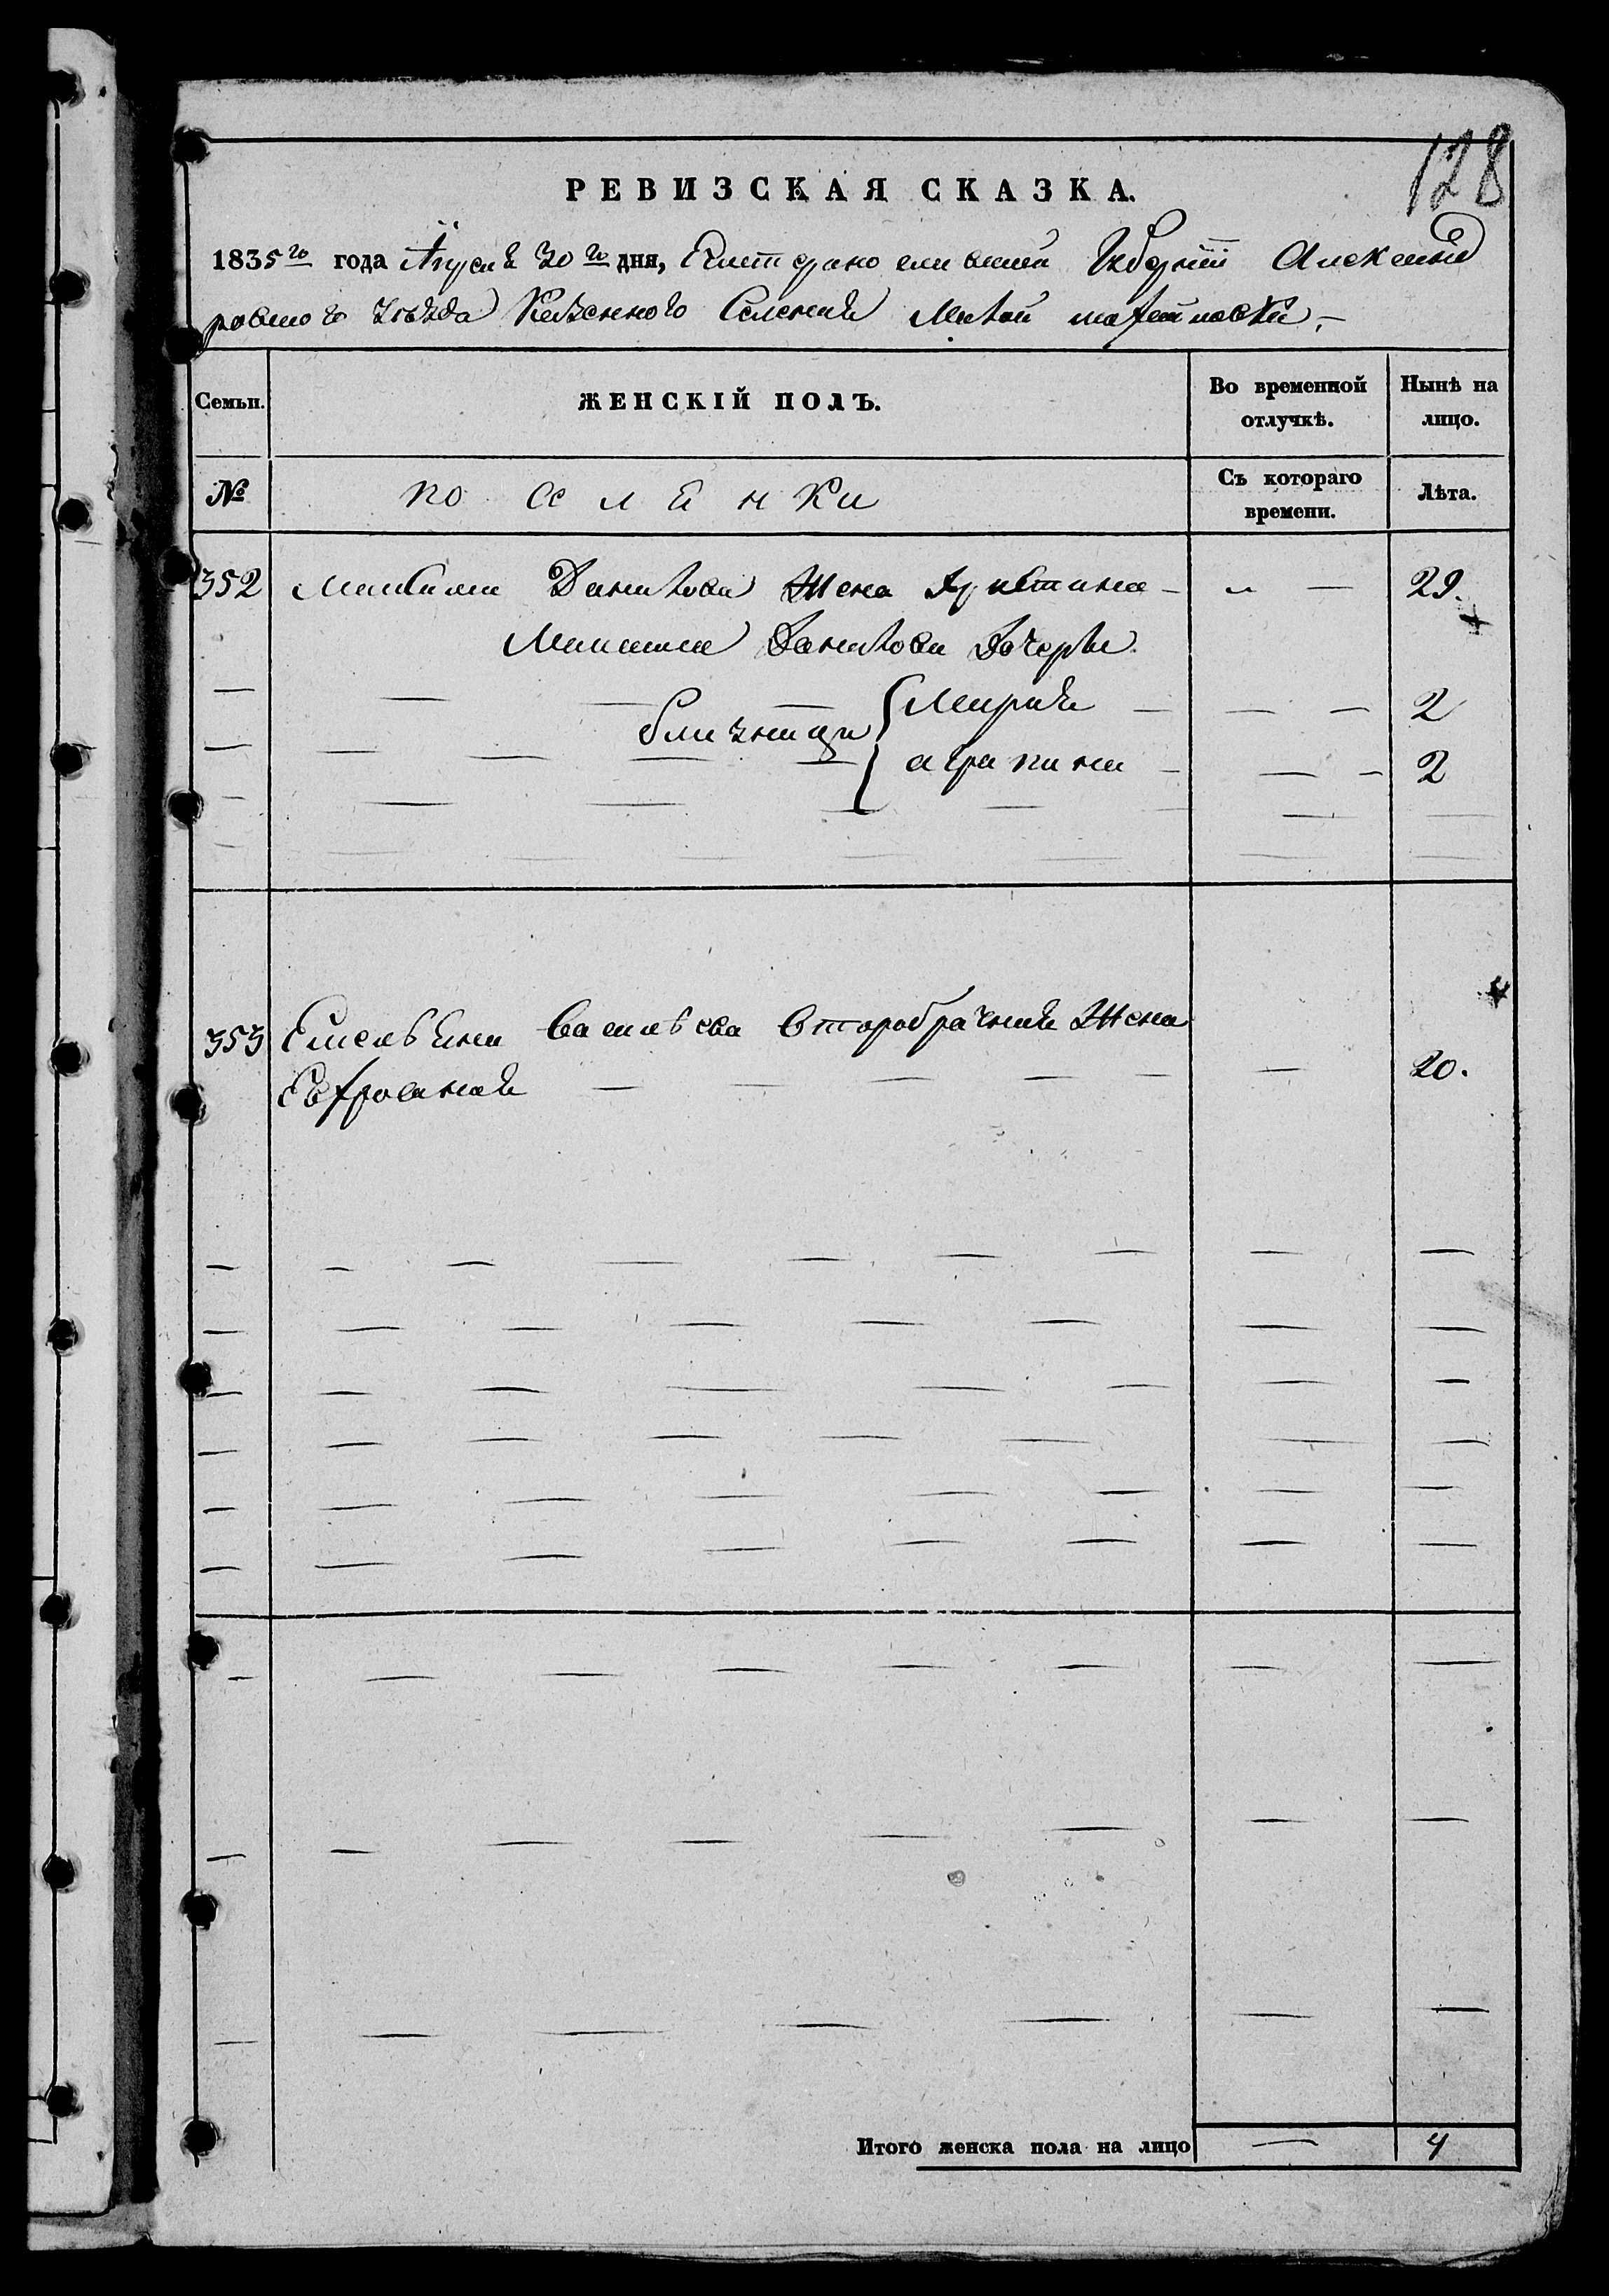 128
РЕВИЗСКАЯ СКАЗКА.
1835го года Апреля 30го дня, Екатеринославской Губернии Александ
ровского уезда Казенного Селения Малой токмачки.
Семьи. ЖЕНСКІЙ ПОЛЪ. Во временной отлучкѣ. Нынѣ на лицо.
№ поселянки Съ котораго времени. Лѣта.
352 Максима Данилова Жена Христина — — 29.
Максима Данилова Дочери
близнецы { Мария — — — 2
агрипина — — — 2
353 Емельяна Васильева второбрачная Жена
Ефросиния — — — — — — 20.
Итого женска пола на лицо — 4